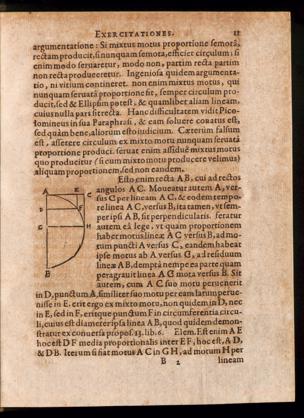 EXERCITATIONES. 11
argumentatione: Si mixtus motus proportione semota,
rectam producit, si nunquam semota, efficiet circulum: si
enim modo seruaretur, modo non, partim recta partim
non recta produceretur. Ingeniosa quidem argumenta-
tio, ni vitium contineret. non enim mixtus motus, qui
nunquam seruata proportione fit, semper circulum pro-
ducit, sed & Ellipsim potest, & quamlibet aliam lineam,
cuius nulla pars sit recta. Hanc difficultatem vidit Pico-
lomineus in sua Paraphrasi, & eam soluere conatus est,
sed quàm bene, aliorum esto iudicium. Cæterum falsum
est, asserere circulum ex mixto motu nunquam seruata
proportione produci. seruat enim assiduè mixtus motus
quo producitur (si eum mixto motu producere velimus)
aliquam proportionem, sed non eandem.
Esto enim recta A B, cui ad rectos
angulos A C. Moueatur autem A, ver-
sus C per lineam A C. & eodem tempo-
re linea A C versus B, ita tamen, vt sem-
per ipsi A B, sit perpendicularis. feratur
autem ea lege, vt quam proportionem
habet motus lineæ A C versus B, ad mo-
tum puncti A versus C, eandem habeat
ipse motus ab A versus G, ad residuum
lineæ A B, dempta nempe ea parte quam
peragrauit linea A C mota versus B. Sit
autem, cum A C suo motu peruenerit
in D, punctum A, similiter suo motu per eam latum perue-
nisse in E. erit ergo ex mixto motu, non quidem in D, nec
in E, sed in F, eritque punctum F in circumferentia circu-
li, cuius est diameter ipsa linea A B, quod quidem demon-
stratur ex conuersa propos. 13. lib. 6. Elem. Est enim A E
hoc est D F media proportionalis inter E F, hoc est, A D,
& D B. Iterum si fiat motus A C in G H, ad motum H per
B 2 lineam
A E C
D F
G H
B